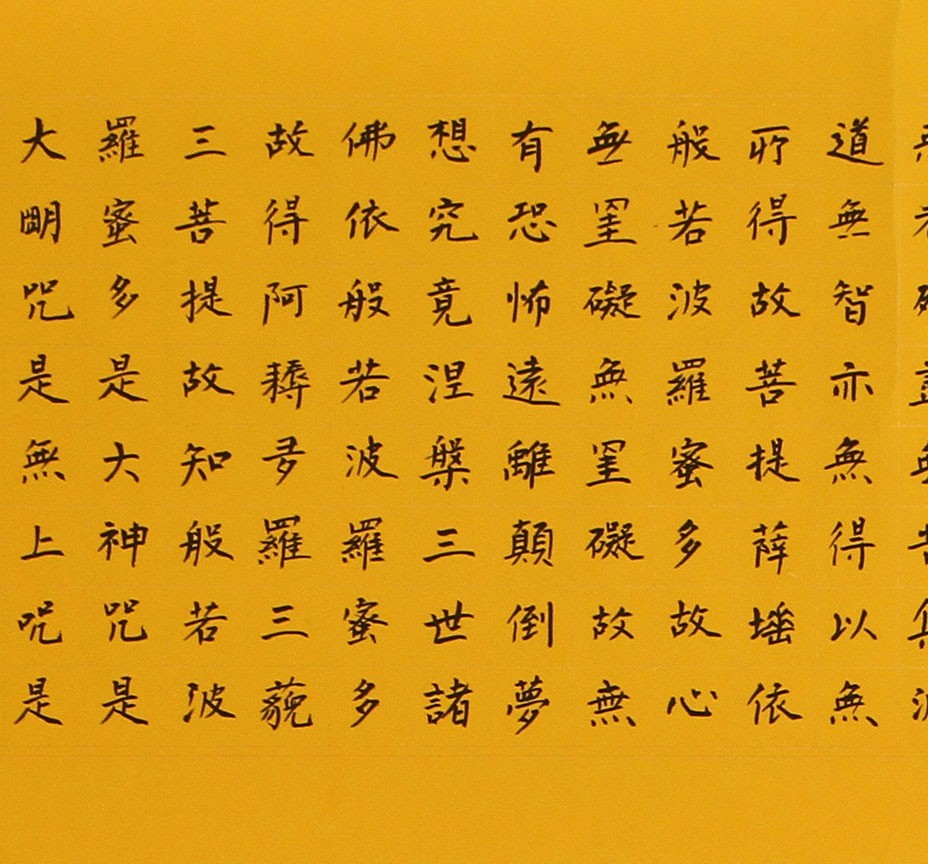 道無智亦無得以無
所得故菩提薩埵依
般若波羅蜜多故心
無罣礙無罣礙故無
有恐怖遠離顛倒夢
想究竟涅槃三世諸
佛依般若波羅蜜多
故得阿耨多羅三藐
三菩提故知般若波
羅蜜多是大神咒是
大明咒是無上咒是